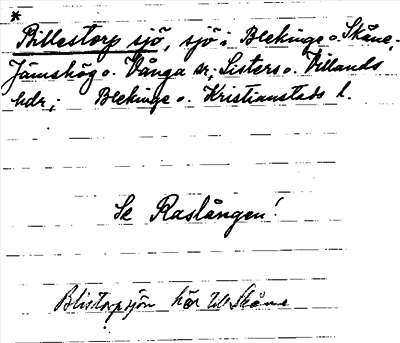 *
Billestorp sjö, sjö i Blekinge o. Skåne,
Jämshög o. Vånga sr; Listers o. Villands
hdr; Blekinge o. Kristianstads l.
Se Raslången!
Blistorpsjön hör till Skåne